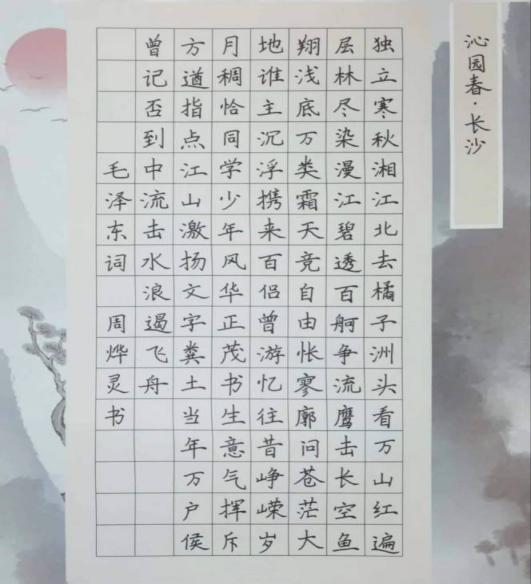 沁园春·长沙
独立寒秋湘江北去橘子洲头看万山红遍
层林尽染漫江碧透百舸争流鹰击长空鱼
翔浅底万类霜天竞自由怅寥廓问苍茫大
地谁主沉浮携来百侣曾游忆往昔峥嵘岁
月稠恰同学少年风华正茂书生意气挥斥
方遒指点江山激扬文字粪土当年万户侯
曾记否到中流击水浪遏飞舟
毛泽东词 周烨灵书